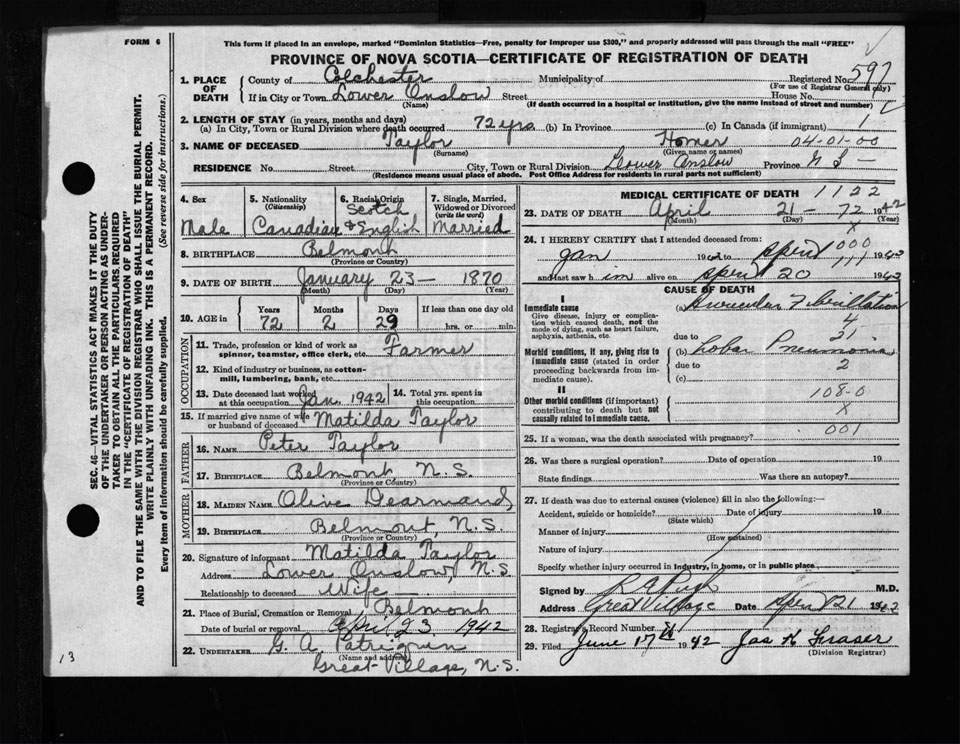 FORM 6
This form if placed in an envelope, marked "Dominion Statistics—Free, penalty for improper use $300," and properly addressed will pass through the mail "FREE"
PROVINCE OF NOVA SCOTIA—CERTIFICATE OF REGISTRATION OF DEATH
SEC. 46—VITAL STATISTICS ACT MAKES IT THE DUTY
OF THE UNDERTAKER OR PERSON ACTING AS UNDER-
TAKER TO OBTAIN ALL THE PARTICULARS REQUIRED
IN THE "CERTIFICATE OF REGISTRATION OF DEATH"
AND TO FILE THE SAME WITH THE DIVISION REGISTRAR WHO SHALL ISSUE THE BURIAL PERMIT.
WRITE PLAINLY WITH UNFADING INK. THIS IS A PERMANENT RECORD.
Every item of information should be carefully supplied. (See reverse side for instructions.)
1. PLACE OF DEATH County of Colchester Municipality of Registered No. 597
(For use of Registrar General only)
If in City or Town Lower Onslow Street House No.
(Name) (If death occurred in a hospital or institution, give the name instead of street and number)
2. LENGTH OF STAY (in years, months and days)
(a) In City, Town or Rural Division where death occurred 72 yrs (b) In Province (c) In Canada (if immigrant) 1
3. NAME OF DECEASED Taylor Homer 04-01-00
(Surname) (Given name or names)
RESIDENCE No. Street City, Town or Rural Division Lower Onslow Province N S —
(Residence means usual place of abode. Post Office Address for residents in rural parts not sufficient)
4. Sex Male
5. Nationality (Citizenship) Canadian
6. Racial Origin Scotch & English
7. Single, Married, Widowed or Divorced (write the word) Married
8. BIRTHPLACE Belmont
(Province or Country)
9. DATE OF BIRTH January 23— 1870
(Month) (Day) (Year)
10. AGE in Years Months Days If less than one day old
72 2 29 hrs. or min.
OCCUPATION
11. Trade, profession or kind of work as spinner, teamster, office clerk, etc. Farmer
12. Kind of industry or business, as cotton-mill, lumbering, bank, etc.
13. Date deceased last worked at this occupation Jan. 1942 14. Total yrs. spent in this occupation
15. If married give name of wife or husband of deceased Matilda Taylor
FATHER
16. NAME Peter Taylor
17. BIRTHPLACE Belmont N.S.
(Province or Country)
MOTHER
18. MAIDEN NAME Olive Dearmand
19. BIRTHPLACE Belmont, N.S.
(Province or Country)
20. Signature of informant Matilda Taylor
Address Lower Onslow, N.S.
Relationship to deceased Wife
21. Place of Burial, Cremation or Removal Belmont
Date of burial or removal April 23 1942
22. UNDERTAKER G. A. Patriquin
(Name and address)
Great Village, N.S.
13
MEDICAL CERTIFICATE OF DEATH 1122
23. DATE OF DEATH April 21 — 72 1942
(Month) (Day) (Year)
x
24. I HEREBY CERTIFY that I attended deceased from:
Jan 1942 to April 1942
1000
111
and last saw him alive on April 20 1942
CAUSE OF DEATH
I
Immediate cause
Give disease, injury or complication which caused death, not the mode of dying, such as heart failure, asphyxia, asthenia, etc.
(a) Auricular Fibrillation
4
due to 21
Morbid conditions, if any, giving rise to immediate cause (stated in order proceeding backwards from immediate cause).
(b) Lobar Pneumonia
due to 2
(c)
II
Other morbid conditions (if important) contributing to death but not causally related to immediate cause.
108-0
x
001
25. If a woman, was the death associated with pregnancy?
26. Was there a surgical operation? Date of operation 19
State findings Was there an autopsy?
27. If death was due to external causes (violence) fill in also the following:—
Accident, suicide or homicide? Date of injury 19
(State which)
Manner of injury
(How sustained)
Nature of injury
Specify whether injury occurred in industry, in home, or in public place
Signed by M.D.
Address Great Village Date April 21 1942
28. Registrar's Record Number
29. Filed June 17th 1942 Jas H Fraser
(Division Registrar)